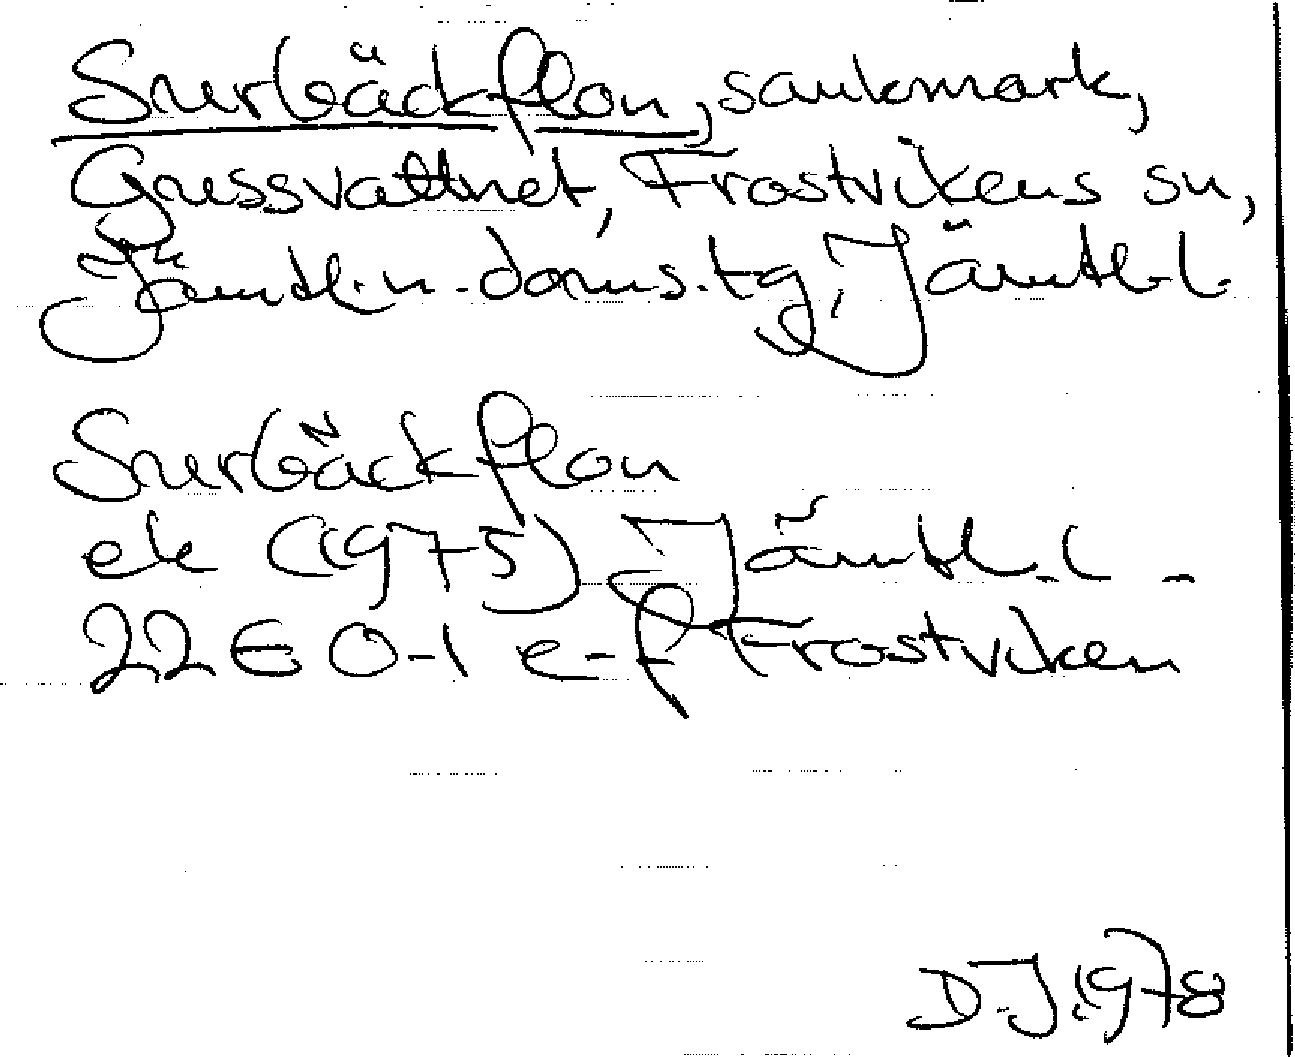 Surbäckflon, sankmark,
Gussvattnet, Frostvikens sn,
Jämtl.n.doms.tg, Jämtl.l.
Surbäckflon
ek (1975) Jämtl.l -
22E 0-1 e-f Frostviken
D.J. 1978